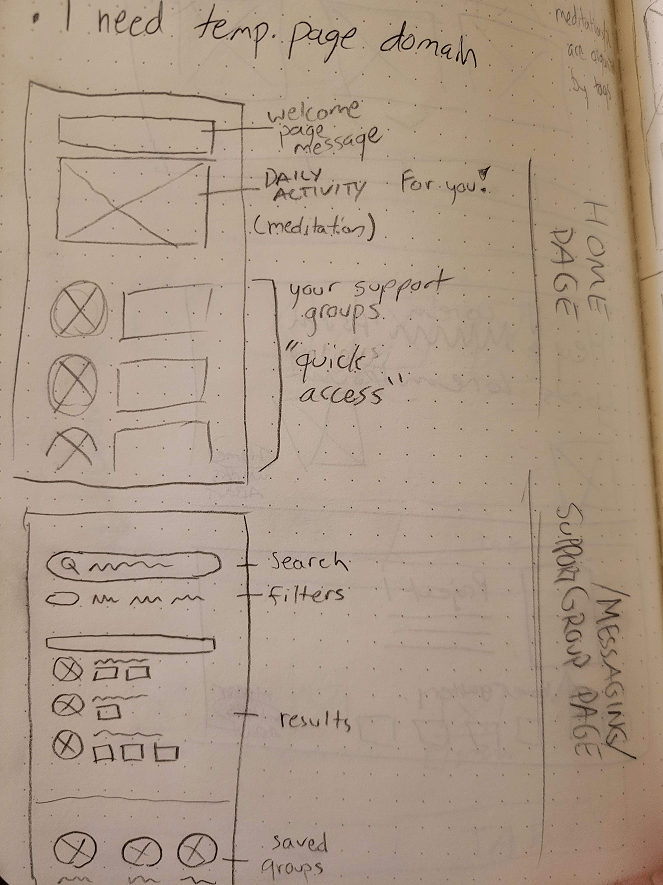 • I need temp. page domain
meditations
are
by
welcome
page
message
DAILY
ACTIVITY For you!
(meditation)
your support
groups
"quick
access"
HOME
PAGE
search
filters
results
saved
groups
/MESSAGING/
SUPPORT GROUP PAGE